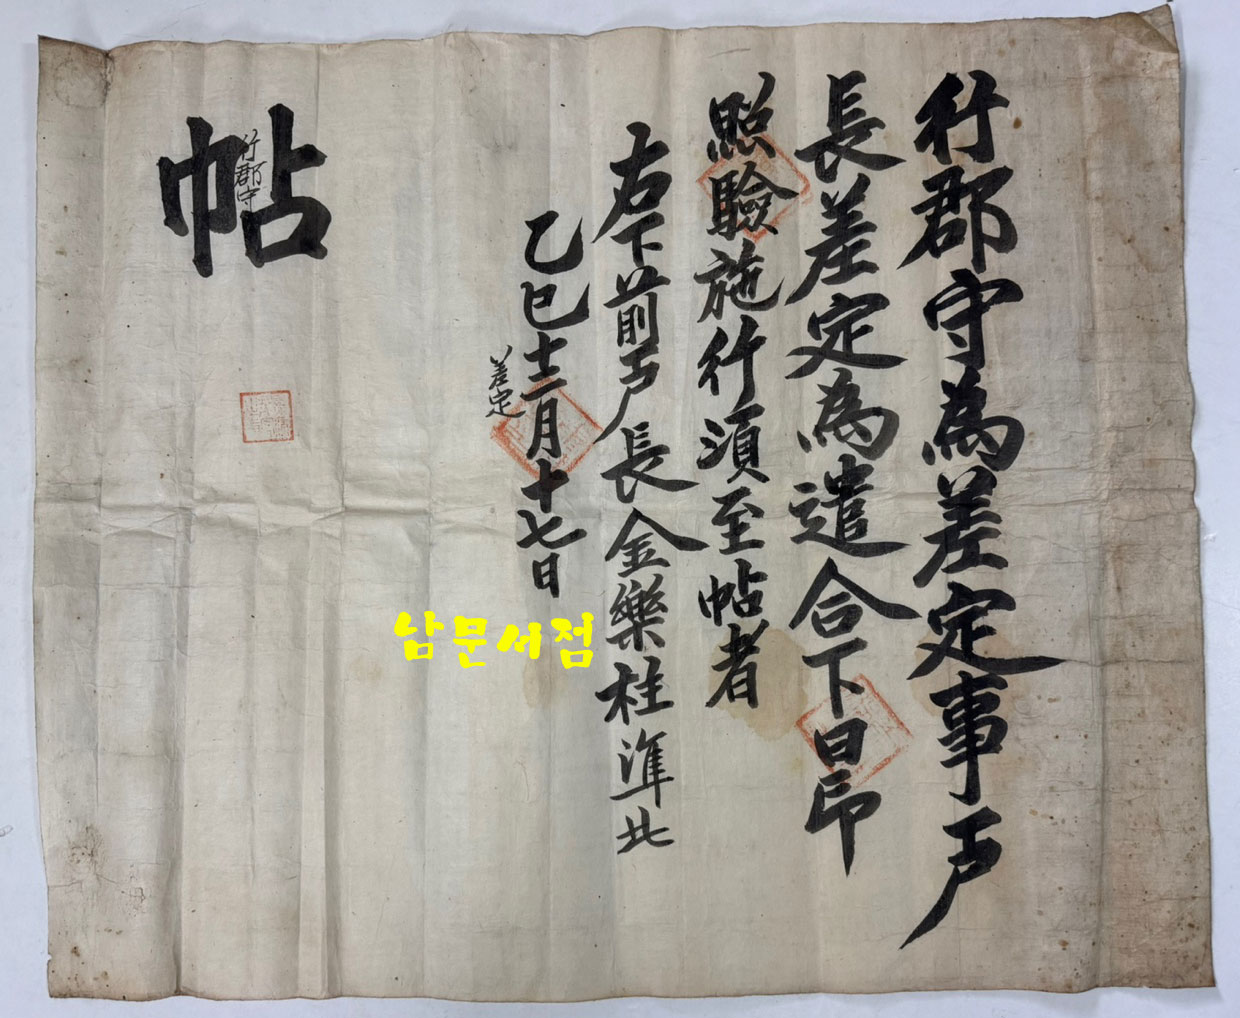 行郡守為差定事戶
長差定為遣合下日卽
照驗施行須至帖者
右下前戶長金樂柱準此
乙巳十二月十七日
差定
帖
行郡守
남문서점